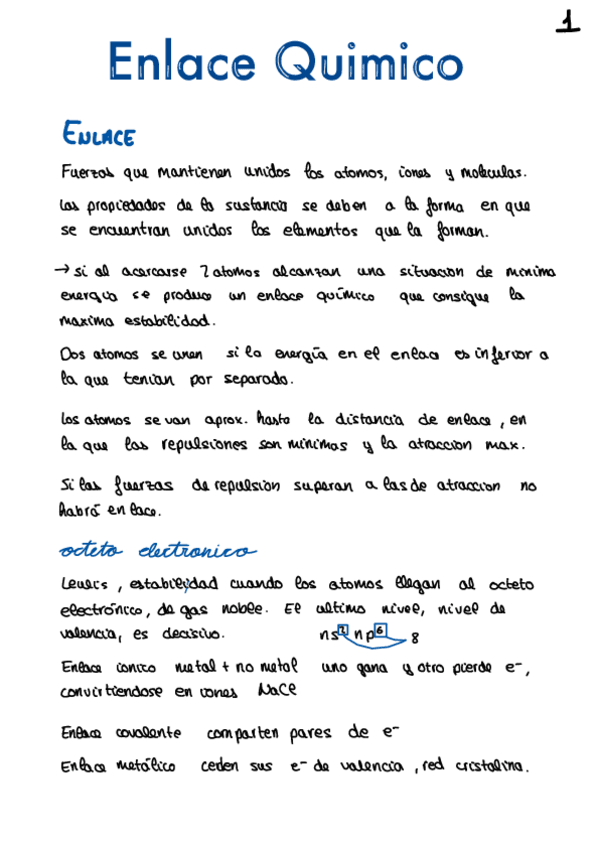 1
Enlace Quimico
ENLACE
Fuerzas que mantienen unidos los atomos, iones y moleculas.
Las propiedades de la sustancia se deben a la forma en que
se encuentran unidos los elementos que la forman.
→ si al acercarse 2 atomos alcanzan una situacion de minima
energia se produce un enlace químico que consigue la
maxima estabilidad.
Dos atomos se unen si la energía en el enlace es inferior a
la que tenian por separado.
Los atomos se van aprox. hasta la distancia de enlace, en
la que las repulsiones son minimas y la atraccion max.
Si las fuerzas de repulsion superan a las de atraccion no
habrá enlace.
octeto electronico
Lewis, estabilidad cuando los atomos llegan al octeto
electrónico, de gas noble. El ultimo nivel, nivel de
valencia, es decisivo. ns² np⁶ 8
Enlace ionico metal + no metal uno gana y otro pierde e⁻,
convirtiendose en iones NaCl
Enlace covalente comparten pares de e⁻
Enlace metálico ceden sus e⁻ de valencia, red cristalina.